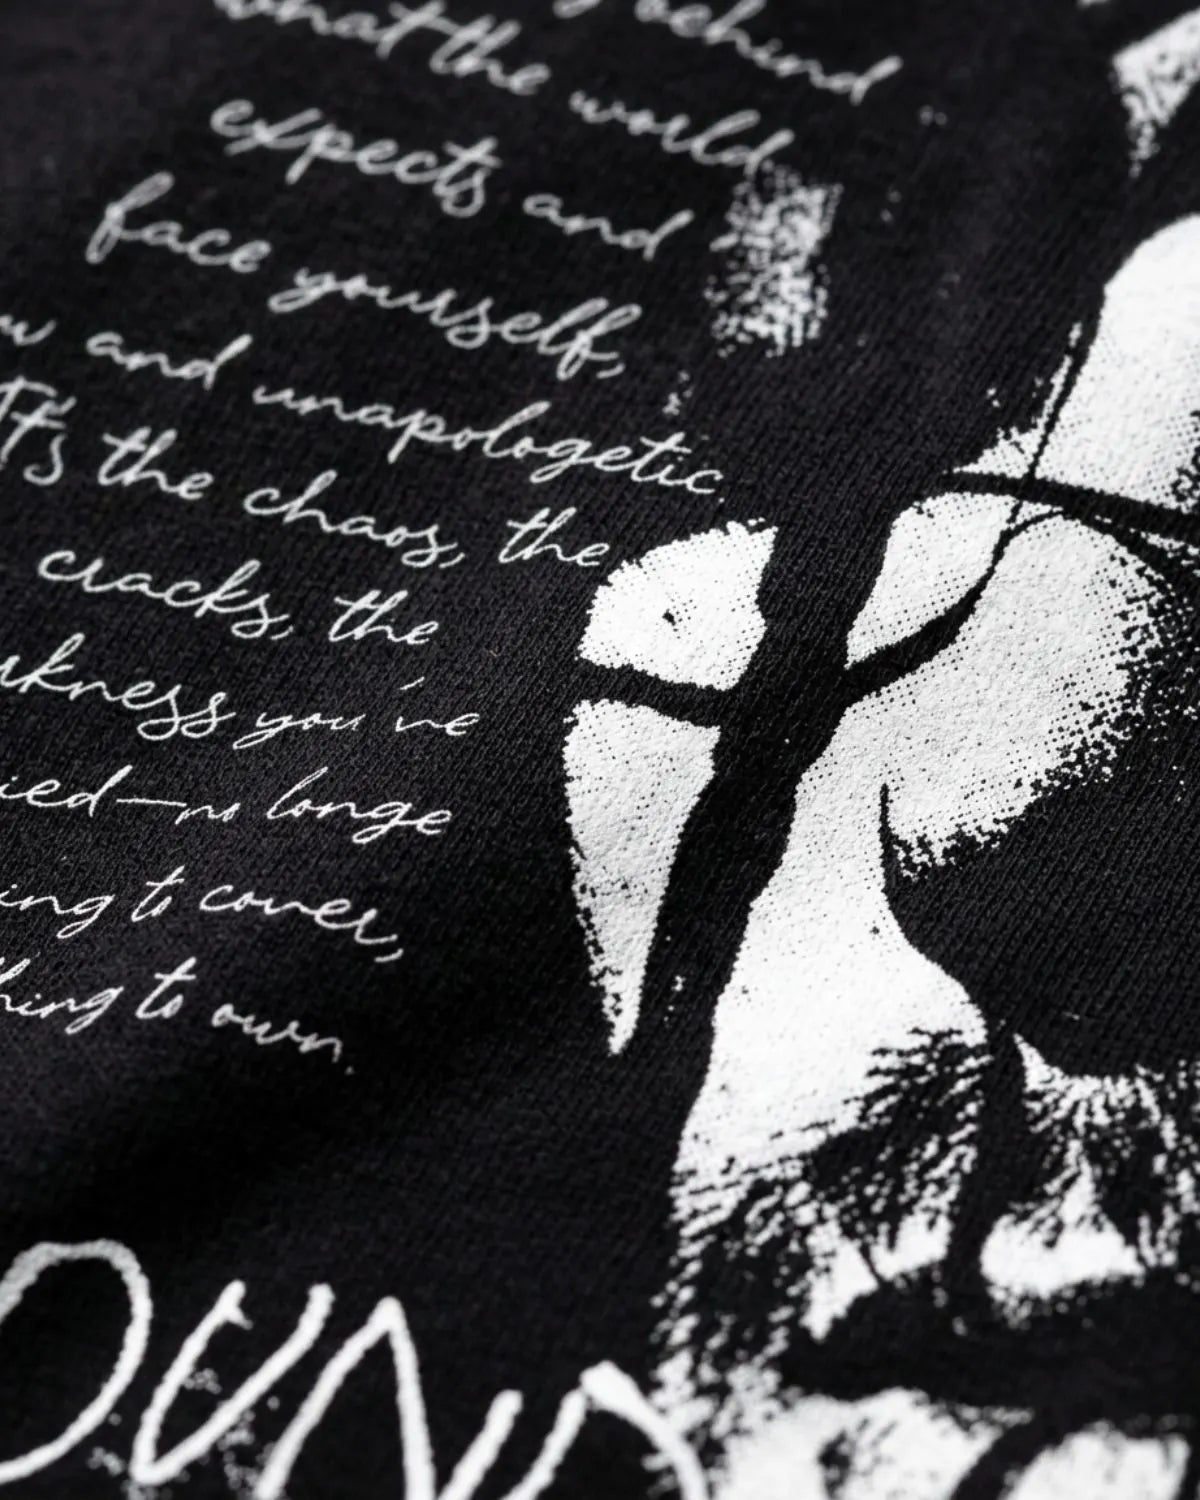 behind
what the world
expects and
face yourself,
and unapologetic.
It's the chaos, the
cracks, the
you've
no longe
to cover,
to own.